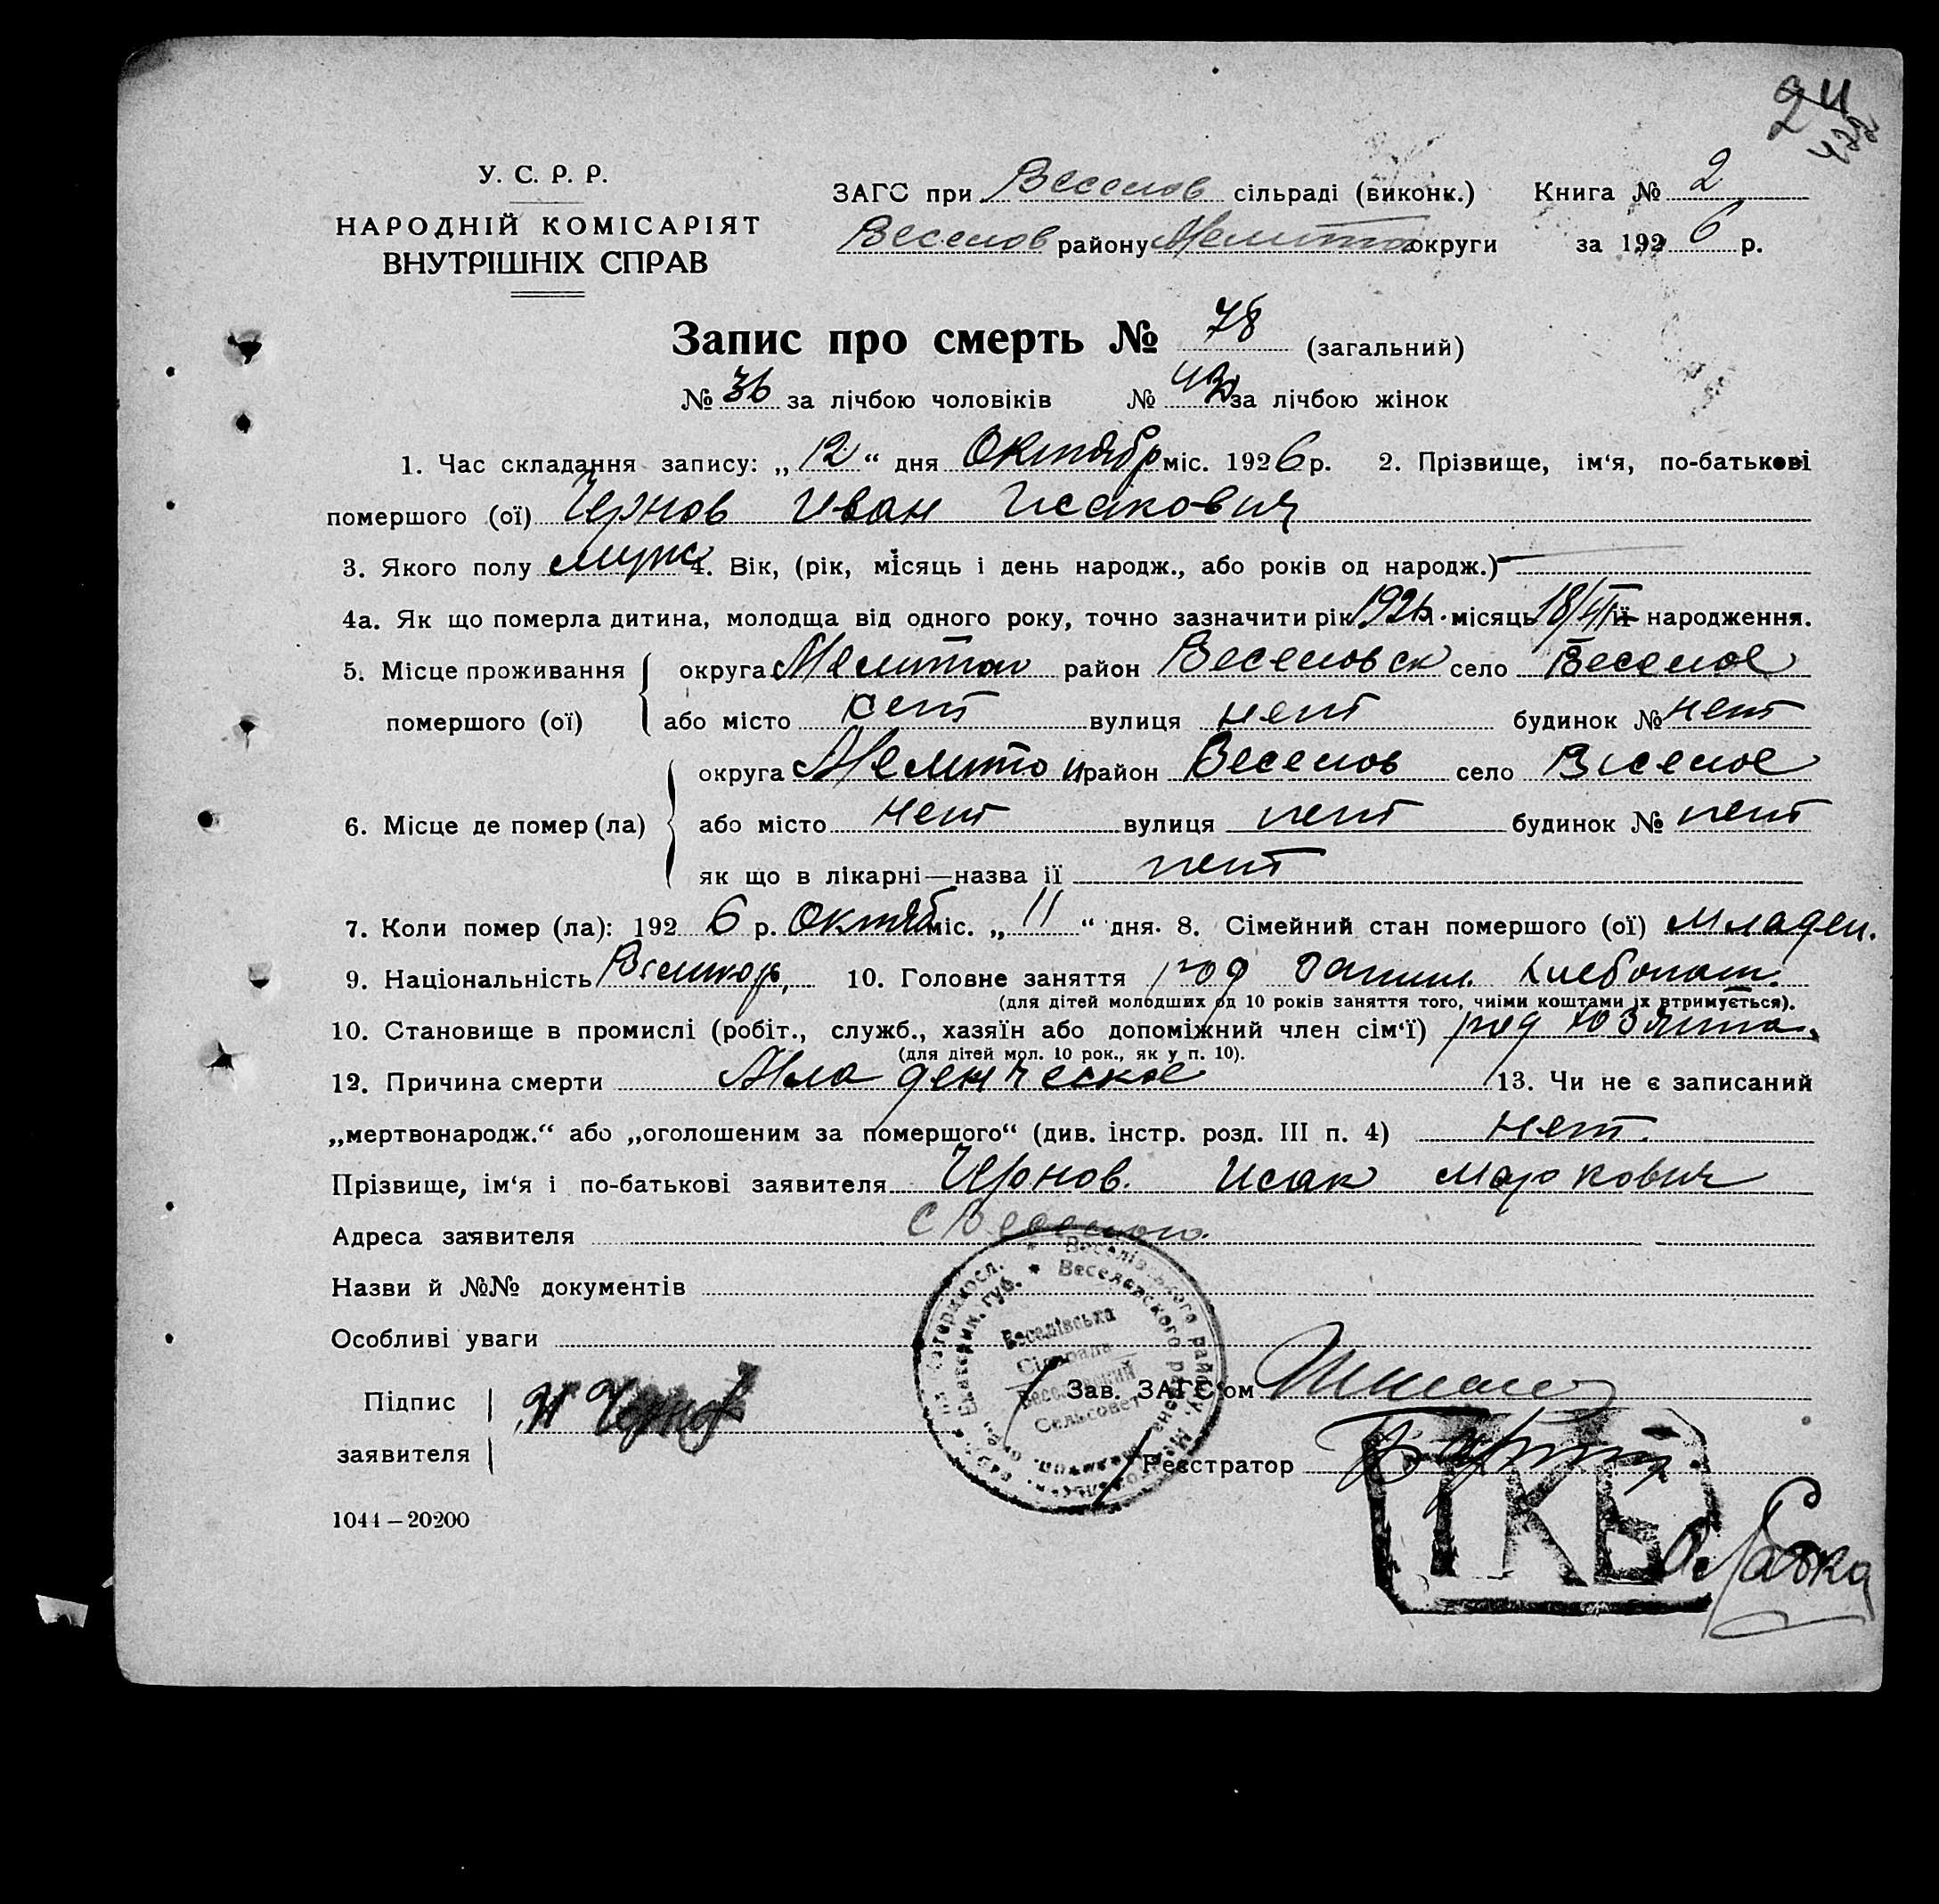 24
422
У. С. Р. Р.
НАРОДНІЙ КОМІСАРІЯТ
ВНУТРІШНІХ СПРАВ
ЗАГС при Веселов сільраді (виконк.) Книга № 2
Веселов району Мелитоп округи за 1926 р.
Запис про смерть № 78 (загальний)
№ 36 за лічбою чоловіків № 42 за лічбою жінок
1. Час складання запису: „12“ дня Октября міс. 1926 р. 2. Прізвище, ім‘я, по-батькові
помершого (ої) Чернов Иван Исакович
3. Якого полу муж 4. Вік, (рік, місяць і день народж., або років од народж.) —
4а. Як що померла дитина, молодща від одного року, точно зазначити рік 1926. місяць її народження.
5. Місце проживання округа Мелитоп район Веселовск село Веселое
помершого (ої) або місто нет вулиця нет будинок № нет
округа Мелитоп район Веселов село Веселое
6. Місце де помер (ла) або місто нет вулиця нет будинок № нет
як що в лікарні—назва ії нет
7. Коли помер (ла): 1926 р. Октяб міс. „11“ дня. 8. Сімейний стан помершого (ої) младен.
9. Національність Великор. 10. Головне заняття род заним. хлебопаш.
(для дітей молодших од 10 років заняття того, чиїми коштами їх втримується).
10. Становище в промислі (робіт., служб., хазяїн або допоміжний член сім‘ї) род хозяина
(для дітей мол. 10 рок., як у п. 10).
12. Причина смерти Младенческое 13. Чи не є записаний
„мертвонародж.“ або „оголошеним за помершого“ (див. інстр. розд. III п. 4) нет.
Прізвище, ім‘я і по-батькові заявителя Чернов. Исак Маркович
Адреса заявителя с Веселого.
Назви й №№ документів
Особливі уваги
Веселівська
Сільрада
Веселовский
Сельсовет
Підпис
заявителя
И Чернов
Зав. ЗАГС‘ом
Реєстратор
1044 — 20200
ТКБ